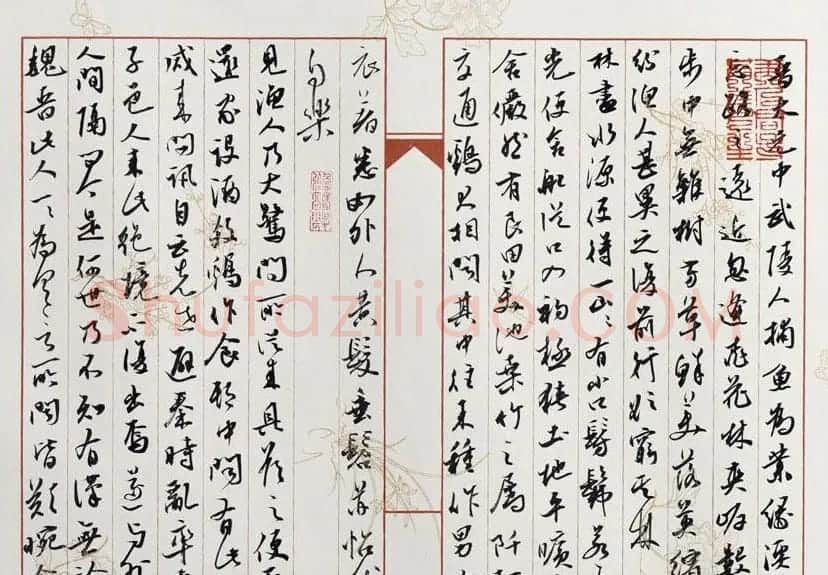 晋太元中武陵人捕魚為業緣溪
忘路之遠近忽逢桃花林夾岸數
步中無雜樹芳草鮮美落英繽
紛漁人甚異之復前行欲窮其林
林盡水源便得一山山有小口髣髴若
光便舍船從口入初極狹土地平曠
舍儼然有良田美池桑竹之屬阡
交通鷄犬相聞其中往來種作男
衣着悉如外人黃髮垂髫並怡然
自樂
見漁人乃大驚問所從來具答之便
還家設酒殺鷄作食村中聞有此
咸來問訊自云先世避秦時亂率
子邑人來此絕境不復出焉遂與外
人間隔問今是何世乃不知有漢無論
魏晉此人一一為具言所聞皆歎惋
Shufaziliao.COM